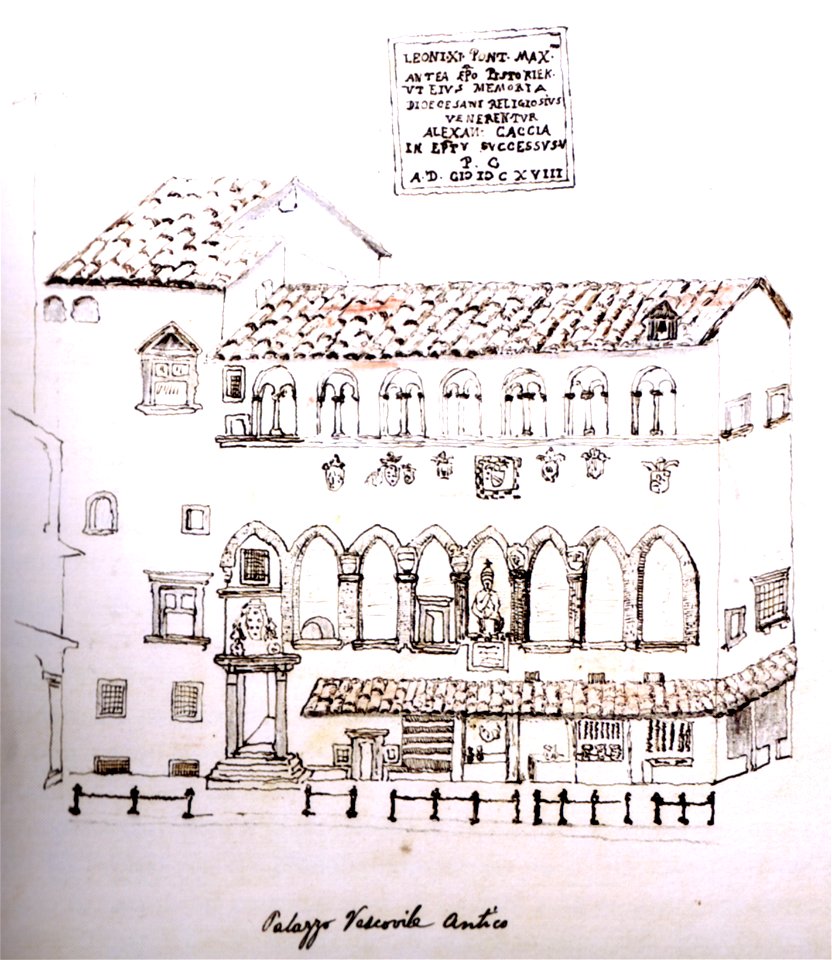 LEONI·XI· PONT· MAX·
ANTEA EPO PISTORIEN·
VT EIVS MEMORIA
DIOECESANI RELIGIOSIVS
VENERENTVR
ALEXAN: CACCIA
IN EPPV SVCCESSVSV
P. C
A·D· CIƆ IƆ C XVIII
Palazzo Vescovile Antico